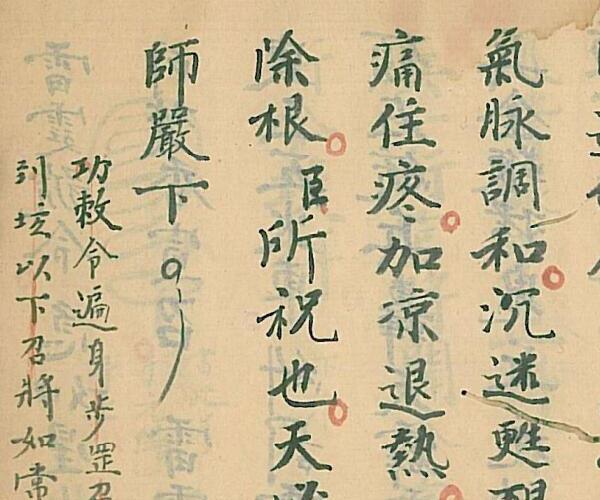 氣脉調和沉迷甦醒
痛住疼加凉退熱
除根臣所祝也天
師嚴下
功敕令遍身步罡召
到垓以下召將如常